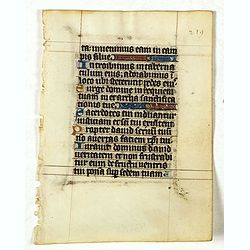 ta invenimus eam in cam
pis silve
Introibimus in taberna
culum eius adorabimus i
loco ubi steterunt pedes eius
Surge domine in requiem
tuam tu et archa sanctifica
tionis tue
Sacerdotes tui induantur
iusticiam et sci tui exultent
Propter david servum tuum
no avertas faciem xpi tui
Iuravit dominus david
veritatem et non frustrabit
eum de fructu ventris
tui pona sup sedem tuam